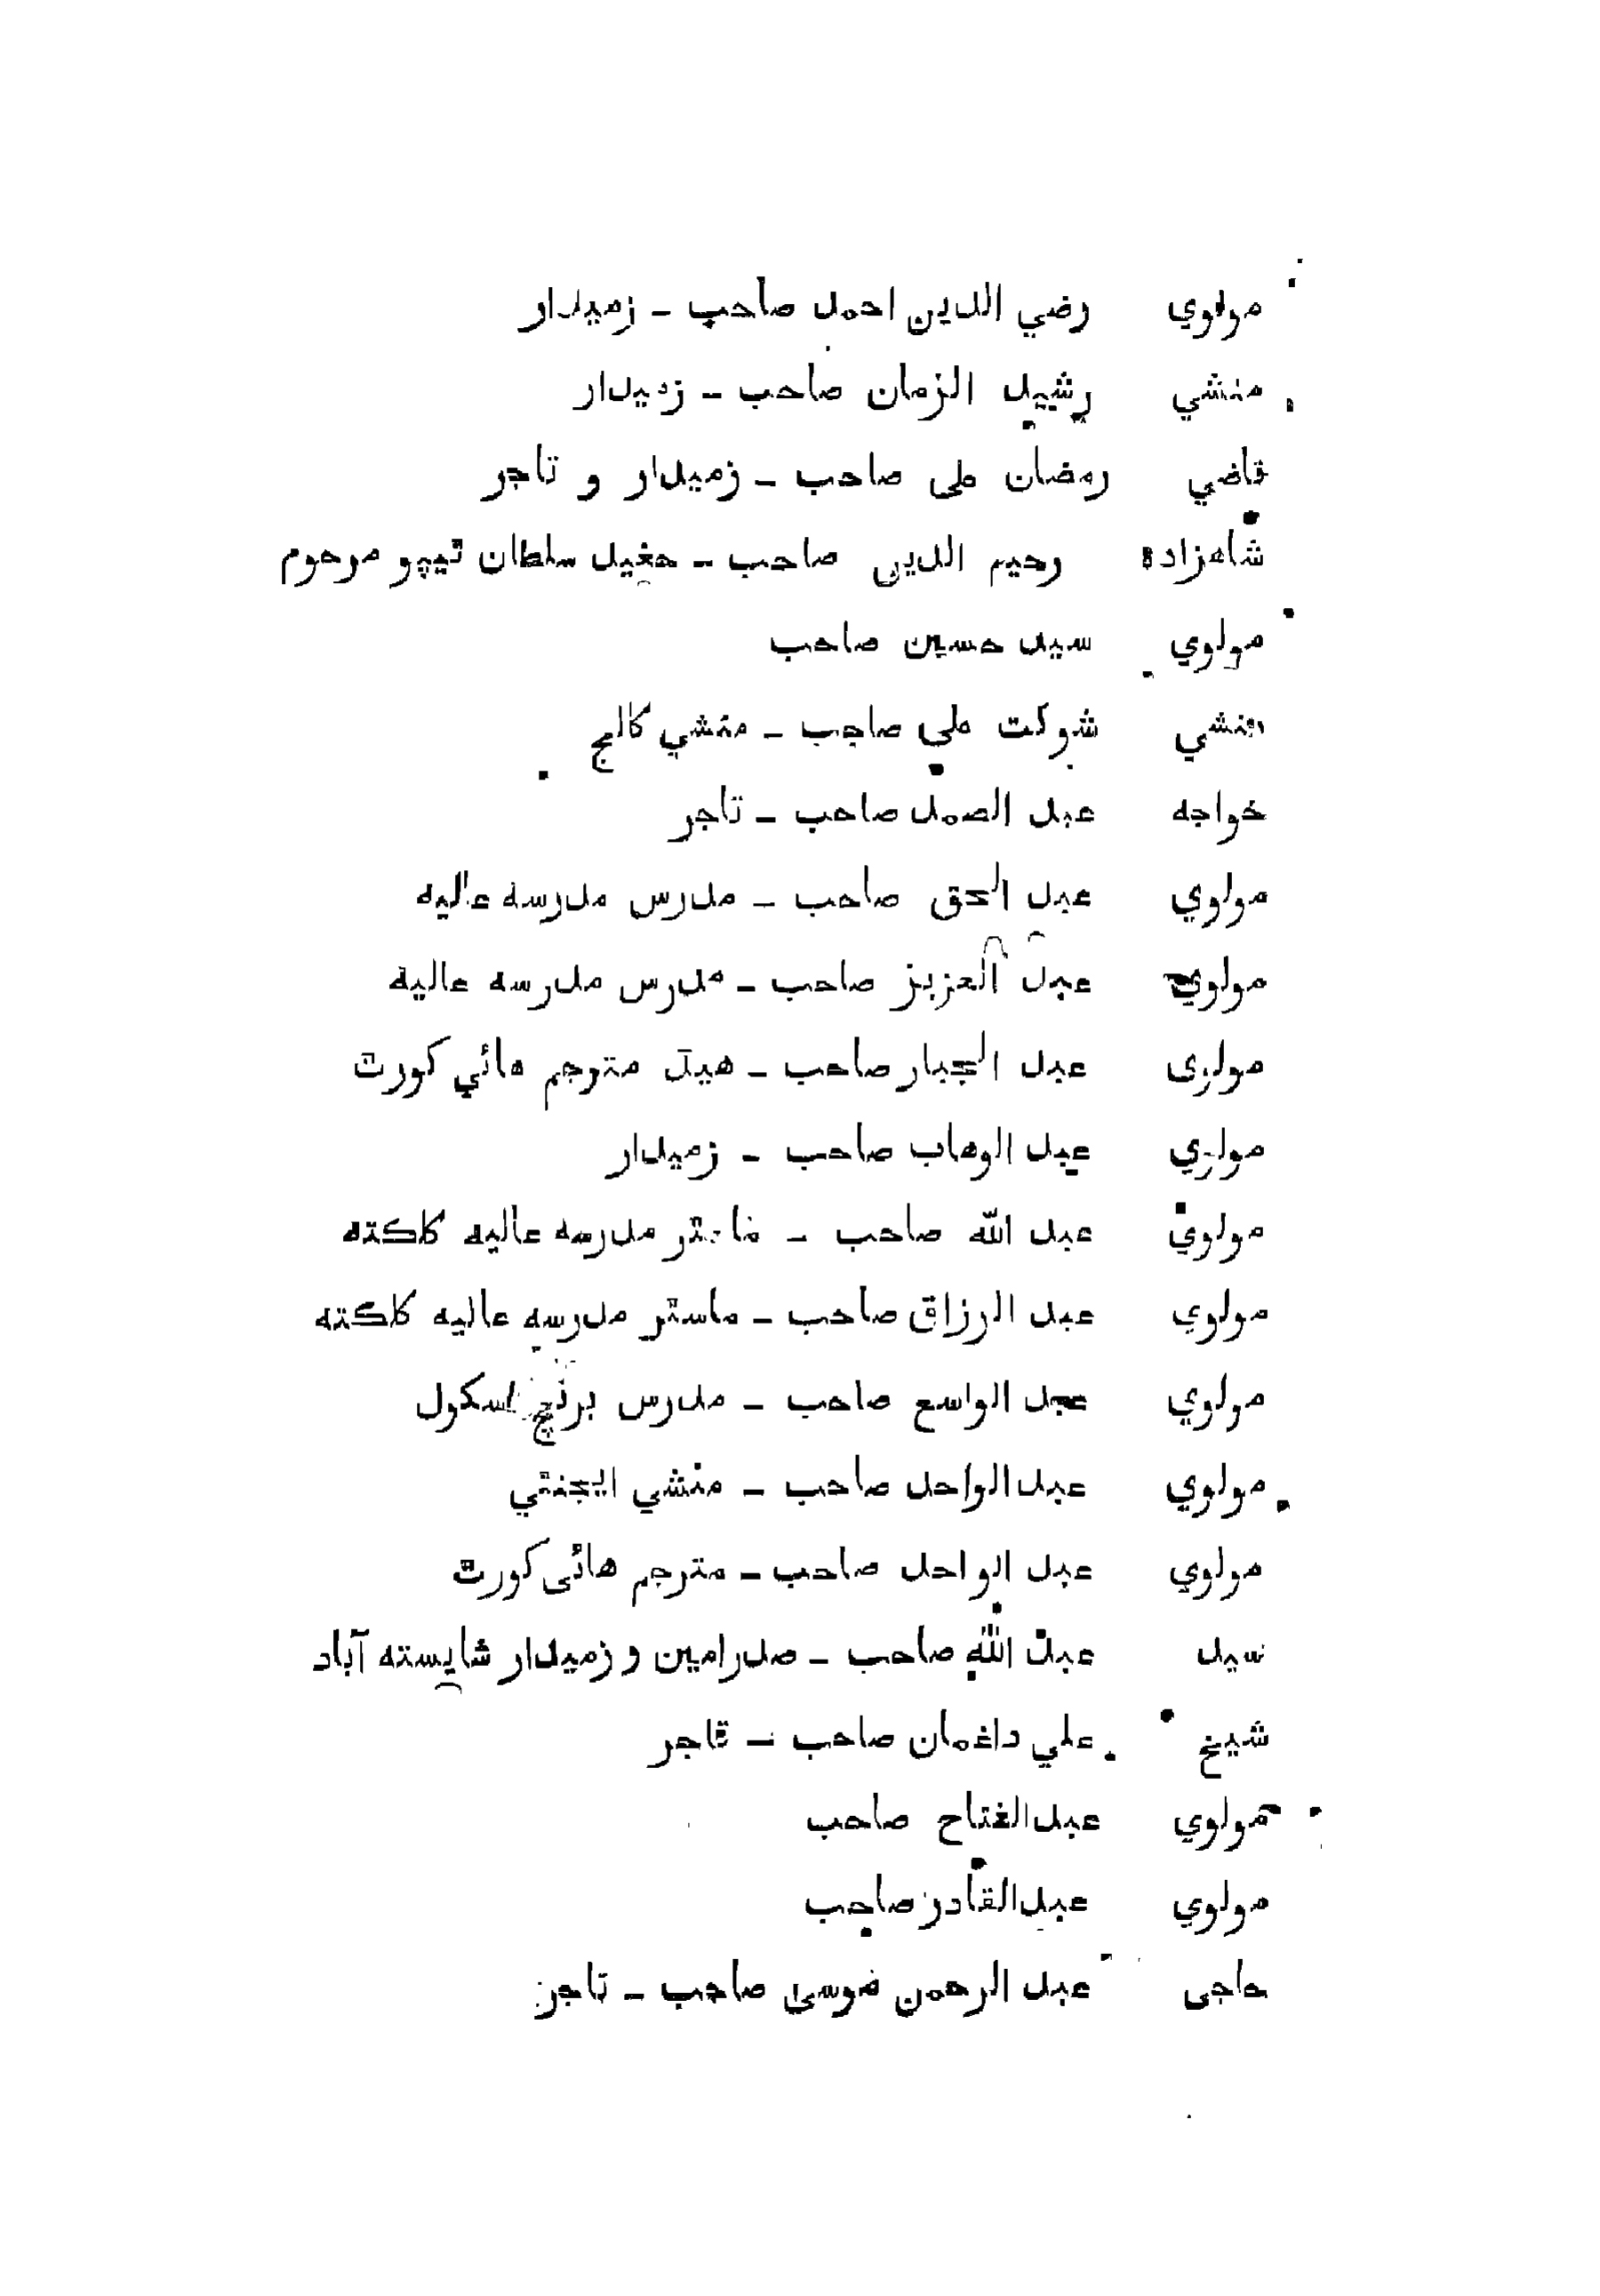 مولوي رضي الدين احمد صاحب ـ زميدار
منشي رشيد الزمان صاحب ـ زميدار
قاضي رمضان علي صاحب ـ زميدار و تاجر
شاهزاده رحيم الدين صاحب ـ حفيد سلطان ٹيپو مرحوم
مولوي سيد حسين صاحب
منشي شوكت علي صاحب ـ منشي كالج
خواجه عبد الصمد صاحب ـ تاجر
مولوي عبد الحق صاحب ـ مدرس مدرسه عاليه
مولوي عبد العزيز صاحب ـ مدرس مدرسه عاليه
مولوی عبد الجبار صاحب ـ هيڈ مترجم هائي كورٹ
مولوي عبد الوهاب صاحب ـ زميدار
مولوي عبد الله صاحب ـ مدرسه عاليه كلكته
مولوي عبد الرزاق صاحب ـ ماسٹر مدرسه عاليه كلكته
مولوي عبد الواسع صاحب ـ مدرس برنچ اسكول
مولوي عبد الواحد صاحب ـ منشي ايجنٹي
مولوي عبد الواحد صاحب ـ مترجم هائی كورٹ
سيد عبد الله صاحب ـ صدرامين و زميدار شايسته آباد
شيخ علي داغمان صاحب ـ تاجر
مولوي عبدالفتاح صاحب
مولوي عبدالقادر صاحب
حاجی عبد الرحمن موسی صاحب ـ تاجر